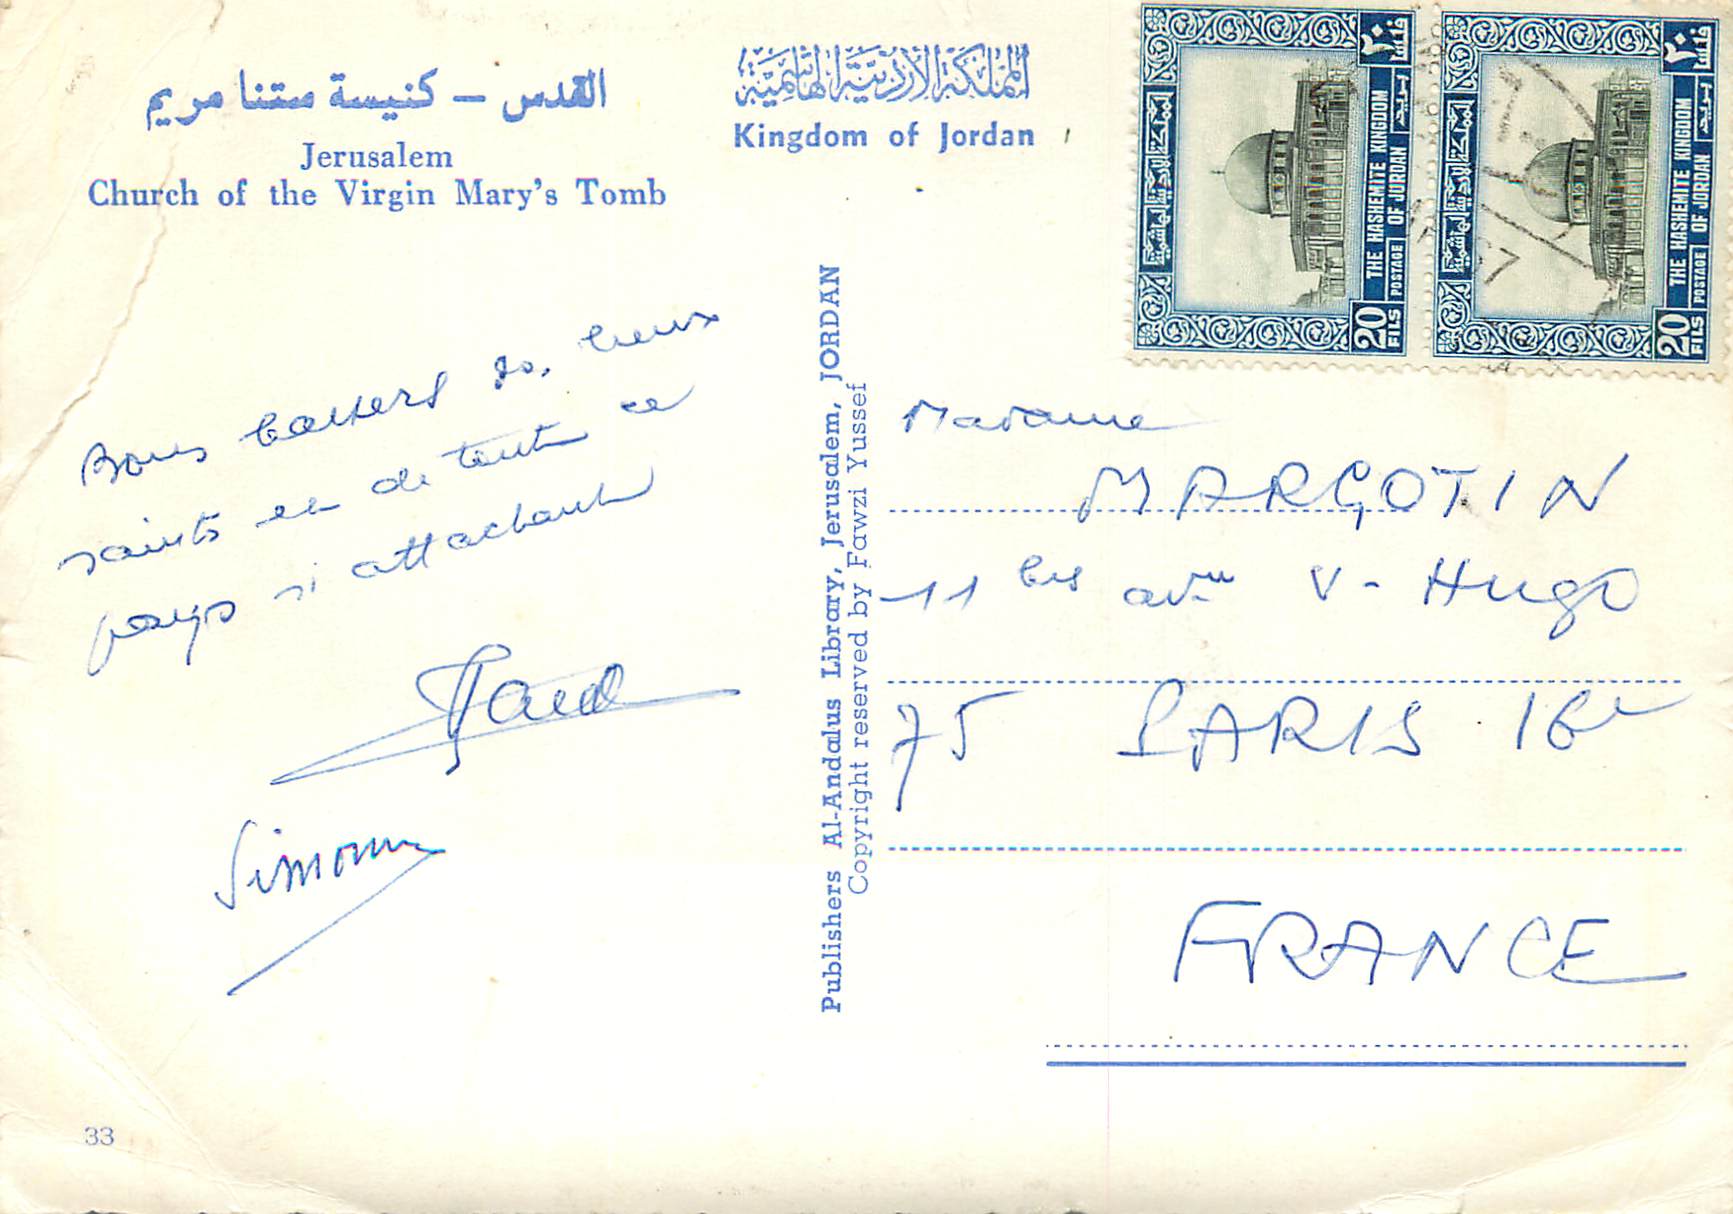 القدس – كنيسة ستنا مريم
Jerusalem
Church of the Virgin Mary's Tomb
المملكة الأردنية الهاشمية
Kingdom of Jordan
المملكة الاردنية الهاشمية
THE HASHEMITE KINGDOM
POSTAGE OF JORDAN بريد
20 FILS
٢٠ فلسا
المملكة الاردنية الهاشمية
THE HASHEMITE KINGDOM
POSTAGE OF JORDAN بريد
20 FILS
٢٠ فلسا
Bons baisers des lieux
saints et de tout ce
pays si attachant
Simonne
Publishers Al-Andalus Library, Jerusalem, JORDAN
Copyright reserved by Fawzi Yussef
Madame
MARGOTIN
11 bis avnu V- Hugo
75 PARIS 16e
FRANCE
33